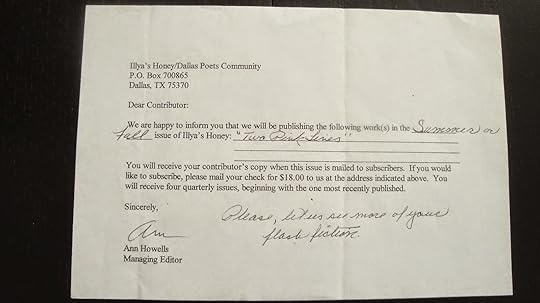 Illya's Honey/Dallas Poets Community
P.O. Box 700865
Dallas, TX 75370
Dear Contributor:
We are happy to inform you that we will be publishing the following work(s) in the Summer or
Fall issue of Illya's Honey: "Two Pink Lines"
You will receive your contributor's copy when this issue is mailed to subscribers. If you would
like to subscribe, please mail your check for $18.00 to us at the address indicated above. You
will receive four quarterly issues, beginning with the one most recently published.
Sincerely,
Please, let us see more of your
flash fiction.
Ann
Ann Howells
Managing Editor